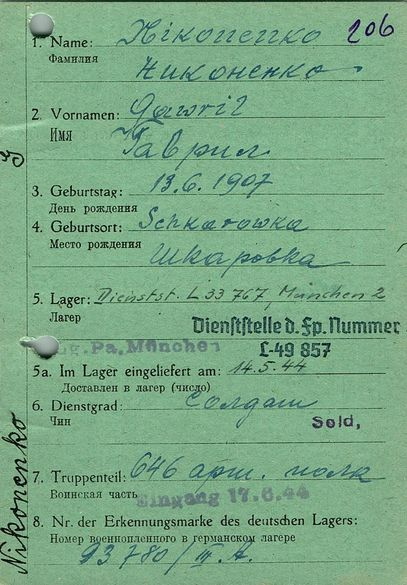 206
1. Name: Nikonenko
Фамилия
Никоненко
2. Vornamen: Gawril
Имя
Гаврил
3. Geburtstag: 13.6.1907
День рождения
4. Geburtsort: Schkarowka
Место рождения
Шкаровка
5. Lager: Dienstst. L 33 767, München 2
Лагер
Dienststelle d. Fp. Nummer
L-49 857
Pa. München
5a. Im Lager eingeliefert am: 14.5.44
Доставлен в лагер (число)
6. Dienstgrad: Солдат
Чин
Sold.
7. Truppenteil: 646 арт. полк
Воинская часть
Eingang 17.6.44
8. Nr. der Erkennungsmarke des deutschen Lagers:
Номер военнопленного в германском лагере
93780/III A.
Nikonenko